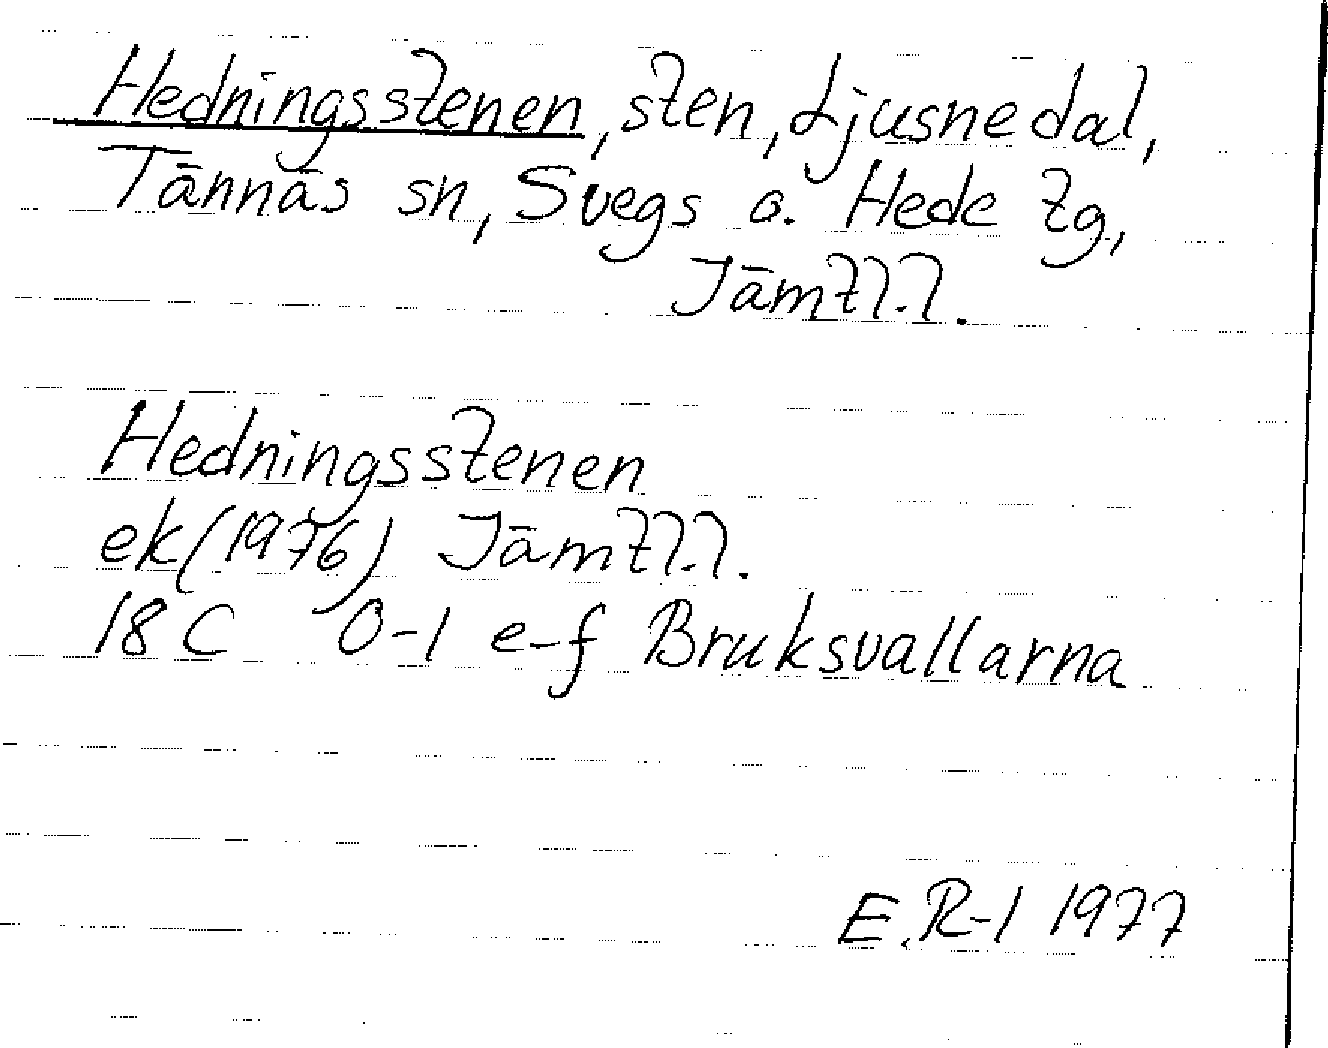 Hedningsstenen, sten, Ljusnedal,
Tännäs sn, Svegs o. Hede tg,
Jämtl.l.
Hedningsstenen
ek(1976) Jämtl.l.
18C 0-1 e-f Bruksvallarna
E.R-l 1977